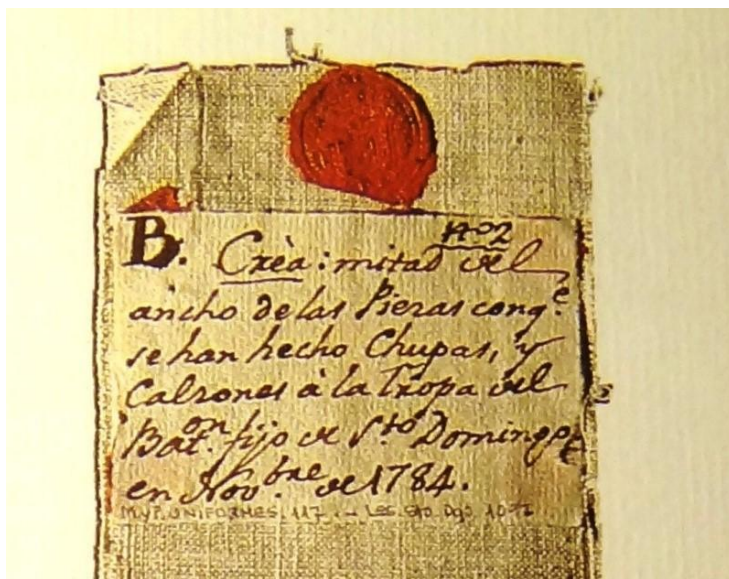 1092
B. Crèa: mitad del
ancho de las Piezas conq.e
se han hecho Chupas, y
Calzones à la Tropa del
Bat.on fijo de S.to Domingo
en Nov.bre de 1784.
M.y P. UNIFORMES, 117. - LEG. STO DGO 1092